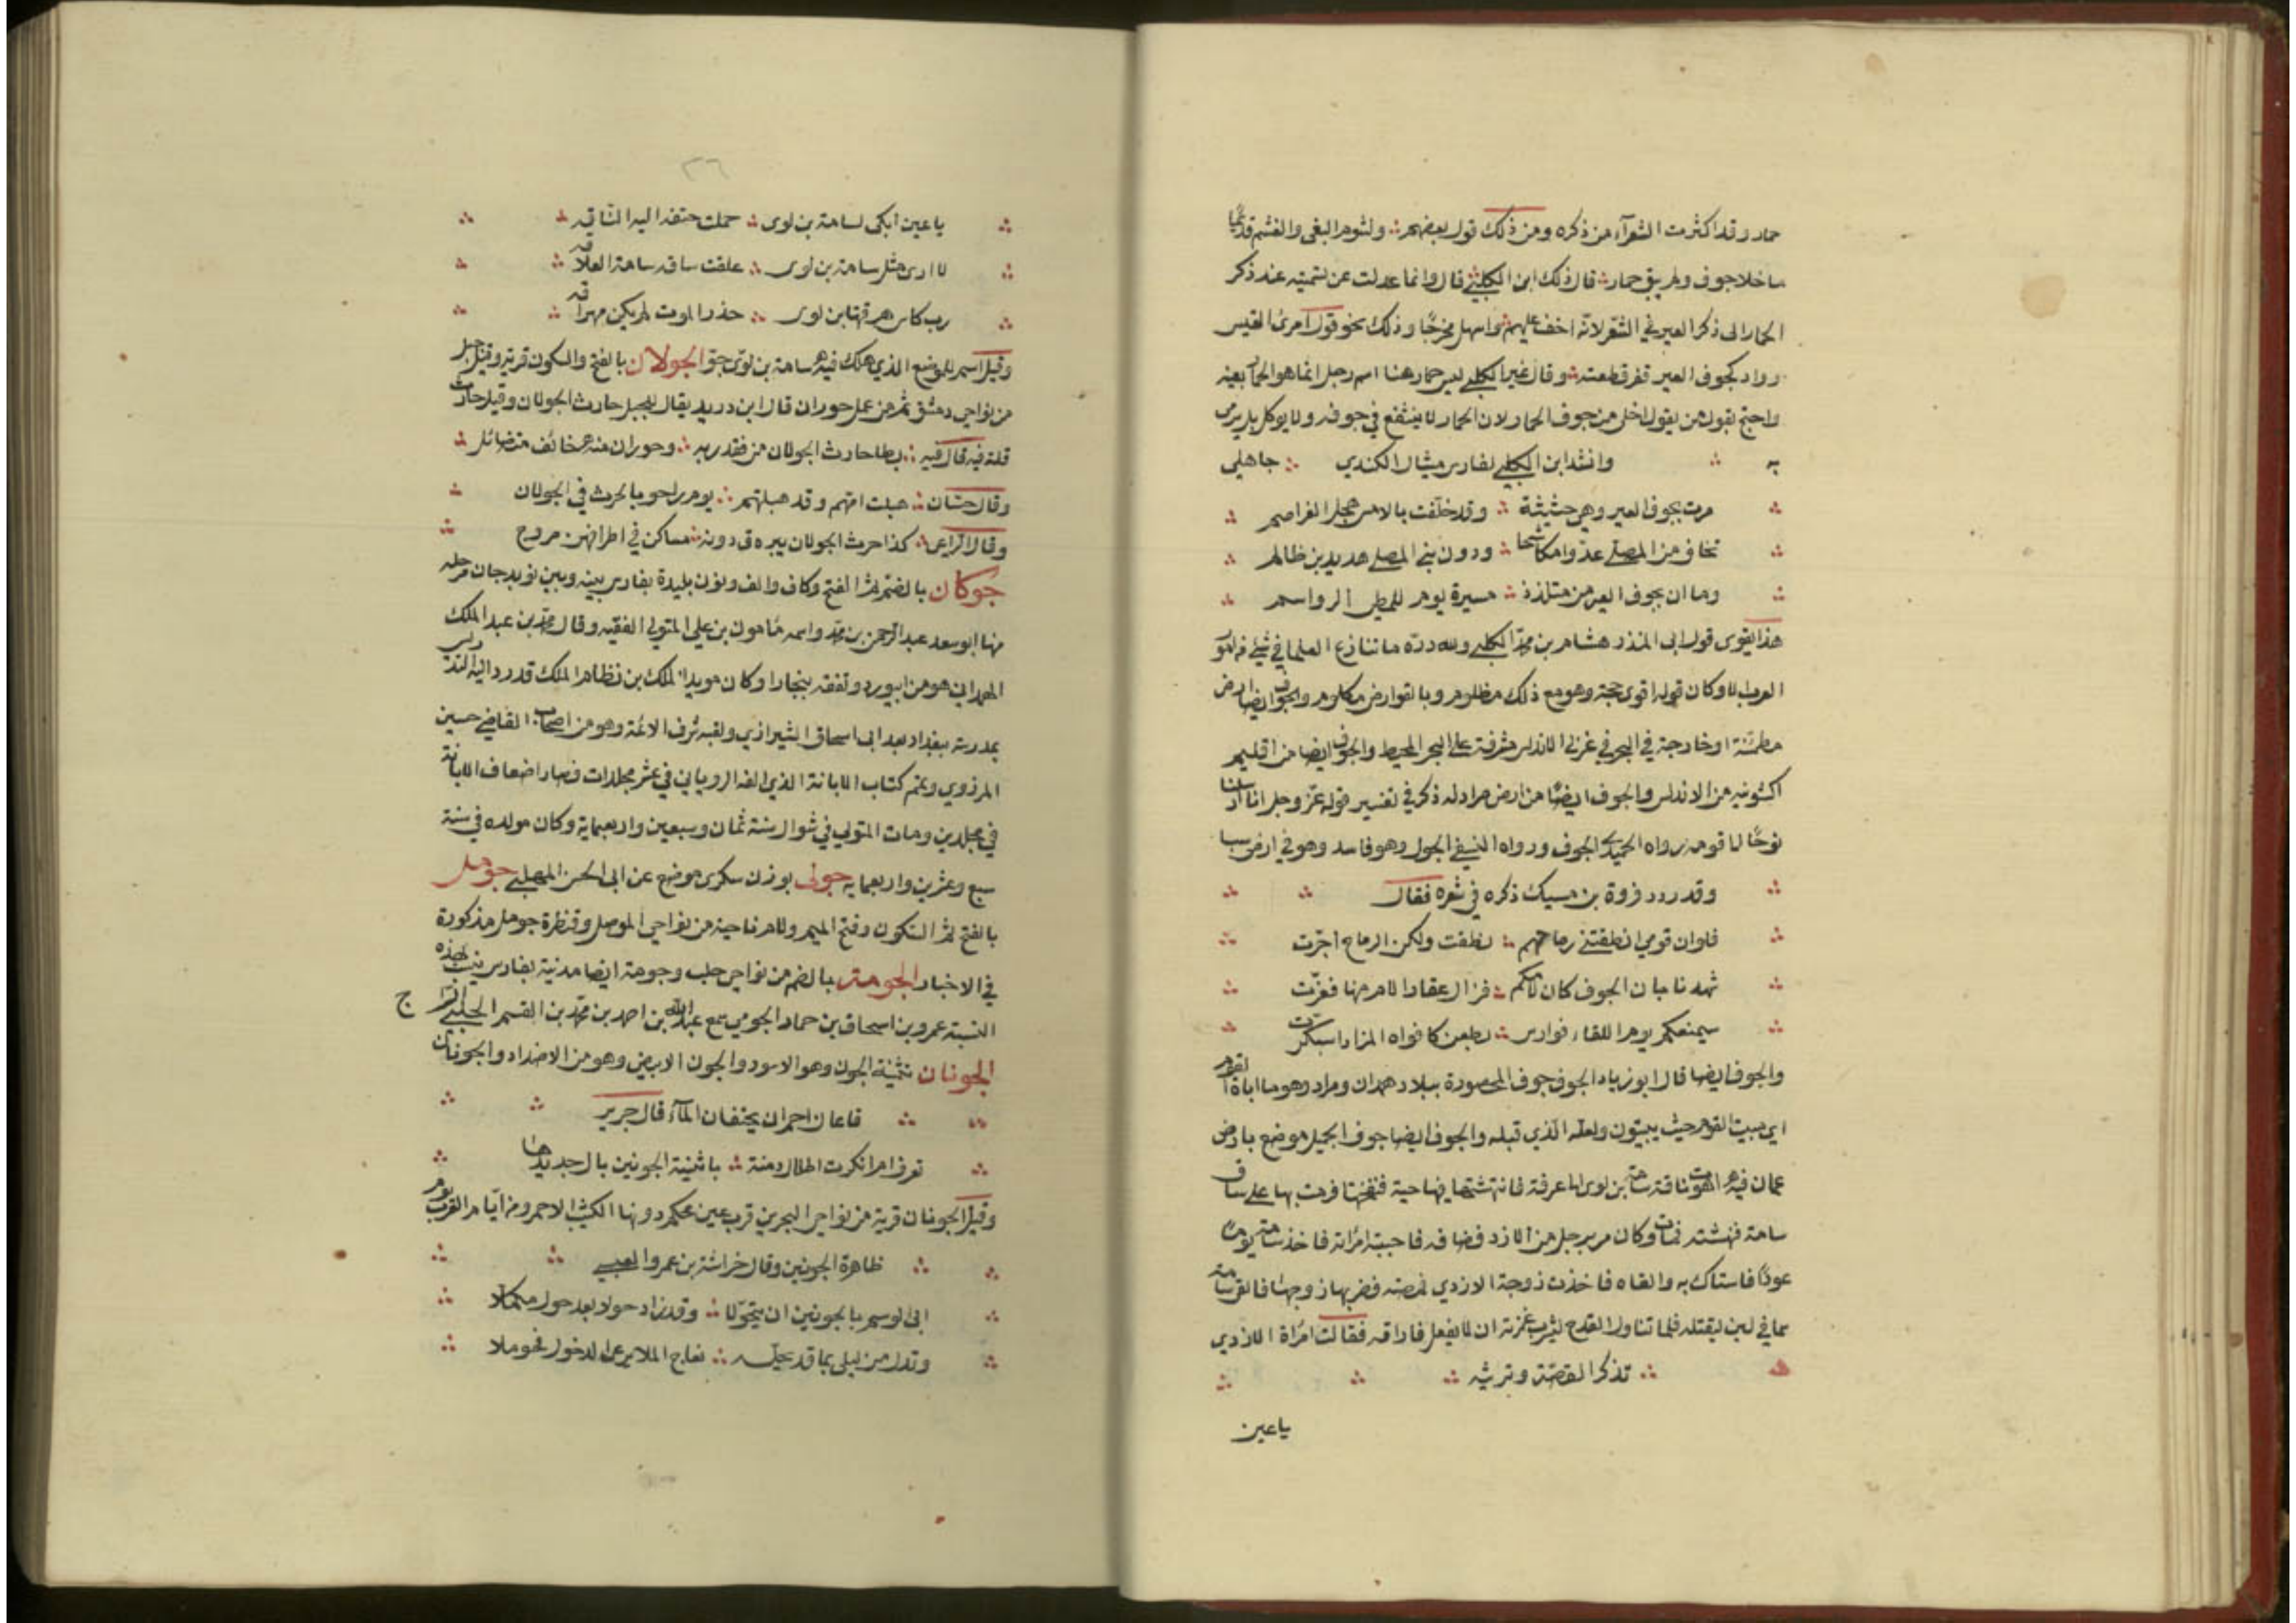 حمار وقد اكثرت الشعرآء من ذكره ومن ذلك قول بعضهم ولشوم البغى والغشم قديمًا
ما خلا جوف ولم يبق حمار قال ذلك ابن الكلبي قال وانما عدلت عن تسميته عند ذكر
الحمار الى ذكر العير في الشعر لانه اخف عليهم واسهل مخرجًا وذلك نحو قول امرئ القيس
وواد كجوف العير قفر قطعته وقال غير الكلبي ليس حمار هنا اسم رجل انما هو الحمار بعينه
واحتج بقول من يقول اخلى من جوف الحمار لان الحمار لا ينتفع في جوفه ولا يوكل بل يرمى
به وانشد ابن الكلبي لفارس ميثال الكندي جاهلي
مرت بجوف العير وهي حثيثة وقد خلّفت بالامس هجل الفراصم
تخاف من المصلى عدوا مكاشحا ودون بني المصلى هديد بن ظالم
وما ان بجوف العير من متلذذ مسيرة يوم للمطي الرواسم
هذا يقوى قول ابى المنذر هشام بن محمد الكلبي ولله درّه ما تنازع العلما في شئ من امور
العرب الا وكان قوله اقوى حجة وهو مع ذلك مظلوم وبالقوارض مكلوم والجوف ايضا ارض
مطمئنة او خارجة في البحر في غربي الاندلس مشرفة على البحر المحيط والجوف ايضا من اقليم
اكشونيه من الاندلس والجوف ايضًا من ارض مراد له ذكر في تفسير قوله عزّ وجل انا ارسلنا
نوحًا الى قومه رواه الحميدي الجوف ورواه النسفي الحول وهو فاسد وهو في ارض سبا
وقد ردد فروة بن مسيك ذكره في شعره فقال
فلوان قومي انطقتني رماحهم نطقت ولكن الرماح اجرّت
شهدنا بان الجوف كان لامكم فزال عقار الام منها فعزّت
سيمنعكم يوم اللقاء فوارس بطعن كافواه المزاد اسبكرّت
والجوف ايضا قال ابو زياد الجوف جوف المحصورة ببلاد همدان ومراد وهو ماابة القوم
اي مبيت القوم حيث يبيتون ولعله الذي قبله والجوف ايضا جوف الجميل موضع بارض
عمان فيه اهوت ناقة سامة بن لوى الى عرفة فانتشتها وفيها حية فنفختها فرمت بها على ساق
سامة فنهشته فمات وكان مر برجل من الازد فضافه فاحبته امراته فاخذ سامة يومًا
عودًا فاستاك به والقاه فاخذت زوجة الازدي فمصته فضربها زوجها فالقى سامة
سما في لبن ليقتله فلما تناول القدح ليشرب غمزته ان لا يفعل فاراقه فقالت امراة الازدي
تذكر القصّة وترثيه
ياعين
٢٦
ياعين ابكى لسامة بن لوى حملت حتفه اليه النّاقه
لا ارى مثل سامة بن لوى علقت ساق سامة العلاقه
رب كاس هرقتها بن لوى حذر الموت لم يكن مهراقه
وقيل اسم الموضع الذي هلك فيه سامة بن لوىّ جوّ الجولان بالفتح والسكون قرية وقيل جبل
من نواحي دمشق ثم من عمل حوران قال ابن دريد يقال للجبل حارث الجولان وقيل حارث
قلة فيه قال فيه بطا حارث الجولان من فقد ربه وحوران منه خائف متضائل
وقال حسّان هبلت امهم وقد هبلتهم يوم راحو بالحرث في الجولان
وقال الرّاعى كذا حرث الجولان يبرق دونه مساكن في اطرافهن مروج
جوكان بالضم ثم الفتح وكاف والف ونون بليدة بفارس بينه وبين نوبدجان مرحله
منها ابو سعد عبد الرحمن بن محمد واسمه مامون بن علي المتولي الفقيه وقال محمد بن عبد الملك
الهمداني هو من ابيورد وتفقه ببخارا وكان مويد الملك بن نظام الملك قد رد اليه التدريس
بمدرسة ببغداد بعد ابى اسحاق الشيرازي ولقبه شرف الائمة وهو من اصحاب القاضي حسين
المرذوي وتمم كتاب الابانة الذي الفه الرويانى في عشر مجلدات فصار اضعاف الابانة
في مجلدين ومات المتولى في شوال سنة ثمان وسبعين واربعماية وكان مولده في سنة
سبع وعشرين واربعمايه جولى بوزن سكرى موضع عن ابى الحسن المهلبي جومل
بالفتح ثم السكون وفتح الميم ولام ناحية من نواحي الموصل وقنطرة جومل مذكورة
في الاخبار الجومة بالضم من نواحي حلب وجومة ايضا مدينة بفارس ينسب بهذه
النسبة عمرو بن اسحاق بن حماد الجومي سمع عبد الله بن احمد بن محمد بن القسم الحلبي السرّاج
الجونان تثنية الجون وهو الاسود والجون الابيض وهو من الاضداد والجونان
قاعان احمران يحقنان المآء قال جرير
تعرف ام انكرت اطلال دمنة باثنية الجونين بال جديدها
وقيل الجونان قرية من نواحي البحرين قرب عين محكم دونها الكثيب الاحمر ومن ايّام العرب يوم
ظاهرة الجونين وقال خراشة بن عمرو العبسي
ابى الرسم بالجونين ان يتحوّلا وقد زاد حولا بعد حول مكملا
وتدل من ليلى بما قد تحلّه نعاج الملا يرعى الدخول فحوملا